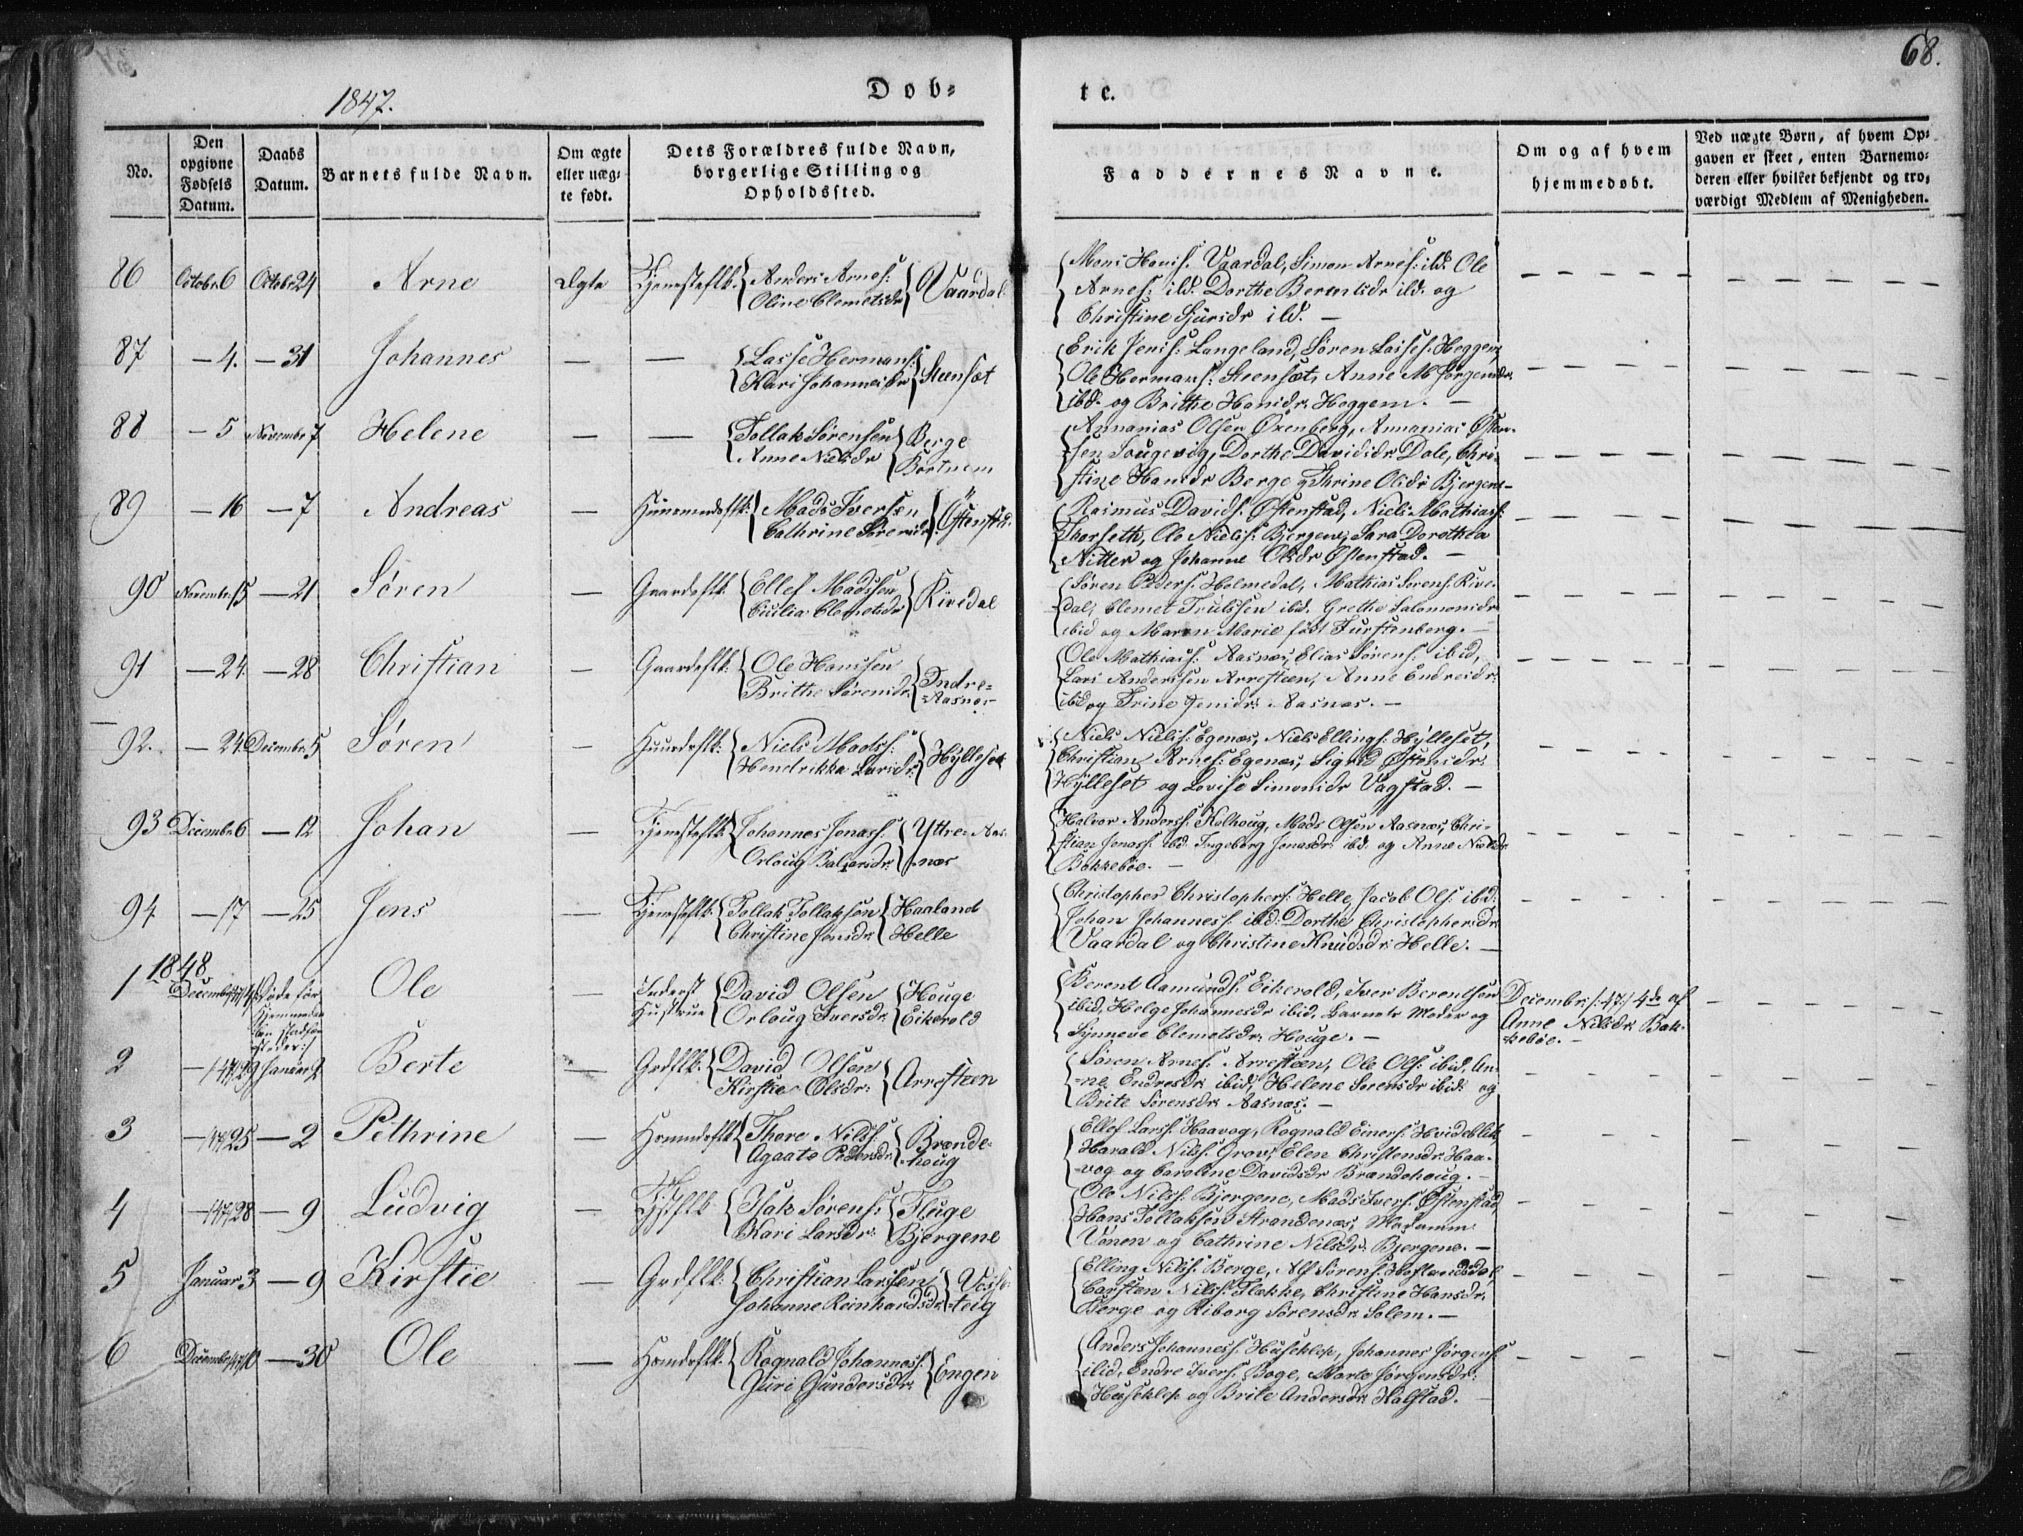 68.
1847.
Dob-
te.
No.
Den opgivne Fødsels Datum.
Daabs Datum.
Barnets fulde Navn.
Om ægte eller uæg-te født.
Dets Forældres fulde Navn, borgerlige Stilling og Opholdssted.
Faddernes Navne.
Om og af hvem hjemmedøbt.
Ved uægte Børn, af hvem Op-gaven er skeet, enten Barnemo-deren eller hvilket bekjendt og tro-værdigt Medlem af Menigheden.
86 Octobr 6 Octobr 24 Arne Ægte Tjenesteflk. Anders Arnes: Oline Clemetsdr Vaardal
Mons Hans: Vaardal, Simon Arnes: ibd. Ole
Arnes: ibd. Dorthe Berentsdr ibd. og
Christine Sjursdr ibd. —
87 — 4. — 31 Johannes — — Lasse Hermans: Kari Johannesdr Steensæt
Erik Jens: Langeland, Søren Lasses: Heggem,
Ole Hermans: Steensæt, Anne M Jørgensdr
ibd. og Brithe Hansdr Heggem. —
88 — 5 Novembr 7 Helene — — Tollak Sørensen Anne Nielsdr Berge Kortnem
Annanias Olsen Oxenberg, Annanias Østen-
sen Tougevig, Dorthe Davidsdr Dale, Chri-
stine Hansdr Berge og Thrine Olsdr Bjergene
89 — 16 — 7 Andreas — Huusmandsflk: Mads Iversen Cathrine Sørensdr Østensted.
Rasmus Davids: Østenstad, Niels Mathiass:
Thorseth, Ole Niels: Bjergene, Sara Dorothea
Nitter og Johanne Olsdr Østenstad. —
90 Novembr 15 — 21 Søren — Gaardsflk. Ellef Madssen Cicilia Clemetsdr Kivedal
Søren Peders: Holmedal, Mathias Sørens: Kive-
dal, Clemet Trulssen ibd. Grethe Salomonsdr
ibid og Maren Marie født Furstenberg. —
91 — 24. — 28 Christian — Gaardsflk: Ole Hanssen Brithe Sørensdr. Indre- Aasnæs
Ole Mathiass: Aasnæs, Elias Sørens: ibid,
Lars Anderssen Arresteen, Anne Endresdr:
ibd og Trine Jensdr. Aasnæs. —
92. — 24. Decembr. 5 Søren — Niels Madss: Hendrikka Larsdr. Hylleset
Niels Niels: Egenæs, Niels Ellings: Hylleset,
Christian Arnes: Egenæs, Sigrid Østensdr.
Hylleset og Lovise Simonsdr Vagstad. —
93 Decembr. 6 — 12 Johan — Tjenesteflk. Johannes Jonass: Orloug Balzersdr. Yttre-Aasnæs
Halvor Anderss: Kolhoug, Mads Olsen Aasnæs, Chri-
stian Jonass: ibd. Ingeborg Jonasdr. ibd. og Anne Nielsdr
Bakkebøe. —
94. — 17 — 25 Jens — Tjenesteflk: Tollak Tollaksen Christine Jensdr. Haaland Helle
Christopher Christophers: Helle, Jacob Ols: ibd:
Johan Johanness: ibd: Dorthe Christophersdr
Vaardal og Christine Knudsdr. Helle. —
1848
1 Ole — Inderst Hustrue David Olsen Orloug Iversdr. Houge Eikerold
Berent Aamunds: Eikerold, Iver Berentsen
ibid, Helge Johannesdr ibid, Barnets Moder og
Synneve Clemetsdr. Houge. —
Decembr: /:47:/ 4de af
Anne Nilsdr. Bak-
kebøe. —
2 Januar 2 Berte — Grdflk: David Olsen Kirstie Olsdr: Arresteen
Søren Arnes: Arresteen, Ole Ols: ibid, An-
ne Endresdr. ibid, Helene Sørensdr ibid: og
Brite Sørensdr. Aasnæs. —
3 — 47/25 — 2 Pethrine — Thore Nils: Agaate Pedersdr. Brænde-houg
Ellef Larss: Haavog, Rognald Einers: Hvideklet,
Harald Nils: Grov, Elen Christensdr. Haa-
vog og Caroline Davidsdr Brændehoug. —
4 — 47/28 — 9 Ludvig — Isak Sørens: Kari Larsdr: Fluge Bjergene
Ole Nils: Bjergene, Mads Ivers: Østenstad,
Hans Tollaksen Strandenæs, Madamm
Vonen og Cathrine Nilsdr. Bjergene. —
5 Januar 3 — 9 Kirstie — Grdflk: Christian Larssen Johanne Reinhardsdr. Vestl-teig
Elling Nils: Berge, Alf Sørens: Hoflandsdal,
Carsten Nils: Flekke, Christine Hansdr.
Berge og Riborg Sørensdr. Solem. —
6 — 30 Ole — Rognald Johanness: Guri Gundersdr. Engen
Anders Johanness: Huseklep, Johannes Jørgens:
ibid, Endre Ivers: Boge, Marte Jørgensdr:
Huseklep og Brite Andersdr. Halstad. —